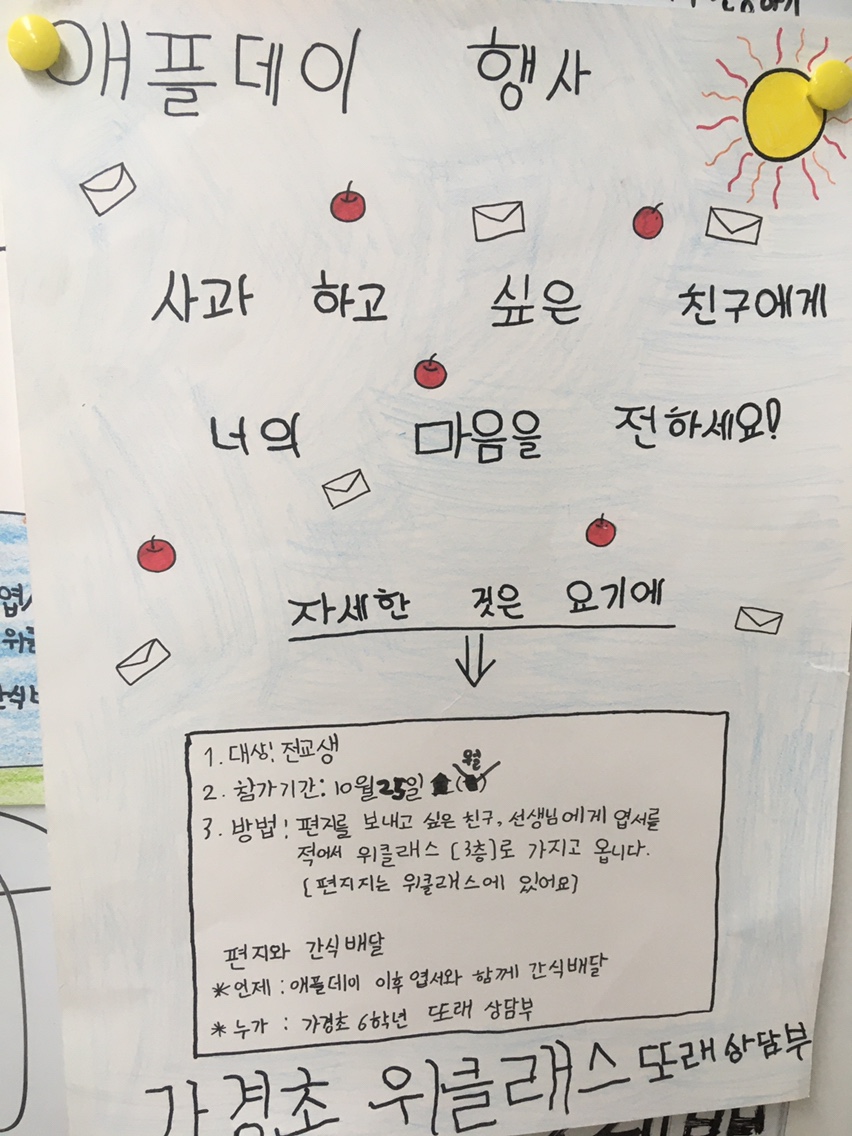 애플데이 행사
사과 하고 싶은 친구에게
너의 마음을 전하세요!
자세한 것은 요기에
1. 대상: 전교생
2. 참가기간: 10월 25일 (월)
3. 방법: 편지를 보내고 싶은 친구, 선생님에게 엽서를
적어서 위클래스 [3층]로 가지고 옵니다.
[편지지는 위클래스에 있어요]
편지와 간식배달
*언제 : 애플데이 이후 엽서와 함께 간식배달
*누가 : 가경초 6학년 또래 상담부
가경초 위클래스 또래상담부